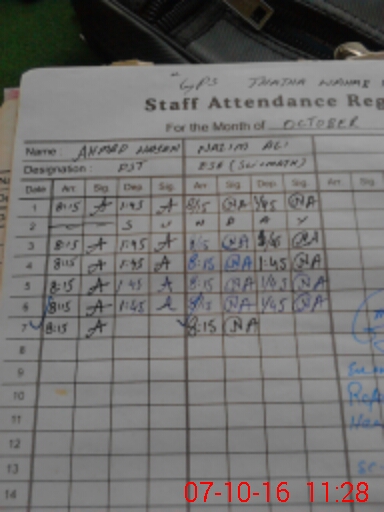 GPS THATHA
Staff Attendance Reg
For the Month of OCTOBER
Name: AHMAD HASAN NAZIM ALI
Designation: PST ESE (Sci-MATH)
Date Arr. Sig. Dep. Sig. Arr. Sig. Dep. Sig. Arr. Sig.
1 8:15 A 1:45 A 8:15 NA 1:45 NA
2 S U N D A Y
3 8:15 A 1:45 A 8:15 NA 1:45 NA
4 8:15 A 1:45 A 8:15 NA 1:45 NA
5 8:15 A 1:45 A 8:15 NA 1:45 NA
6 8:15 A 1:45 A 8:15 NA 1:45 NA
7 8:15 A 8:15 NA
8
9
10
11
12
13
14
07-10-16 11:28